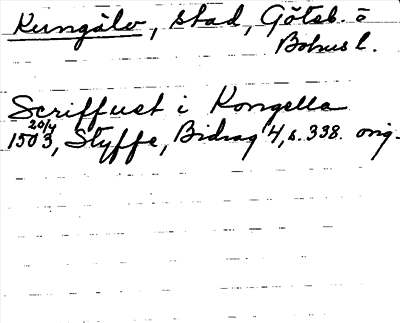 Kungälv, stad, Götab. o
Bohus l.
Scriffuet i Kongella
20/4
1503, Styffe, Bidrag 4, s. 338. orig.